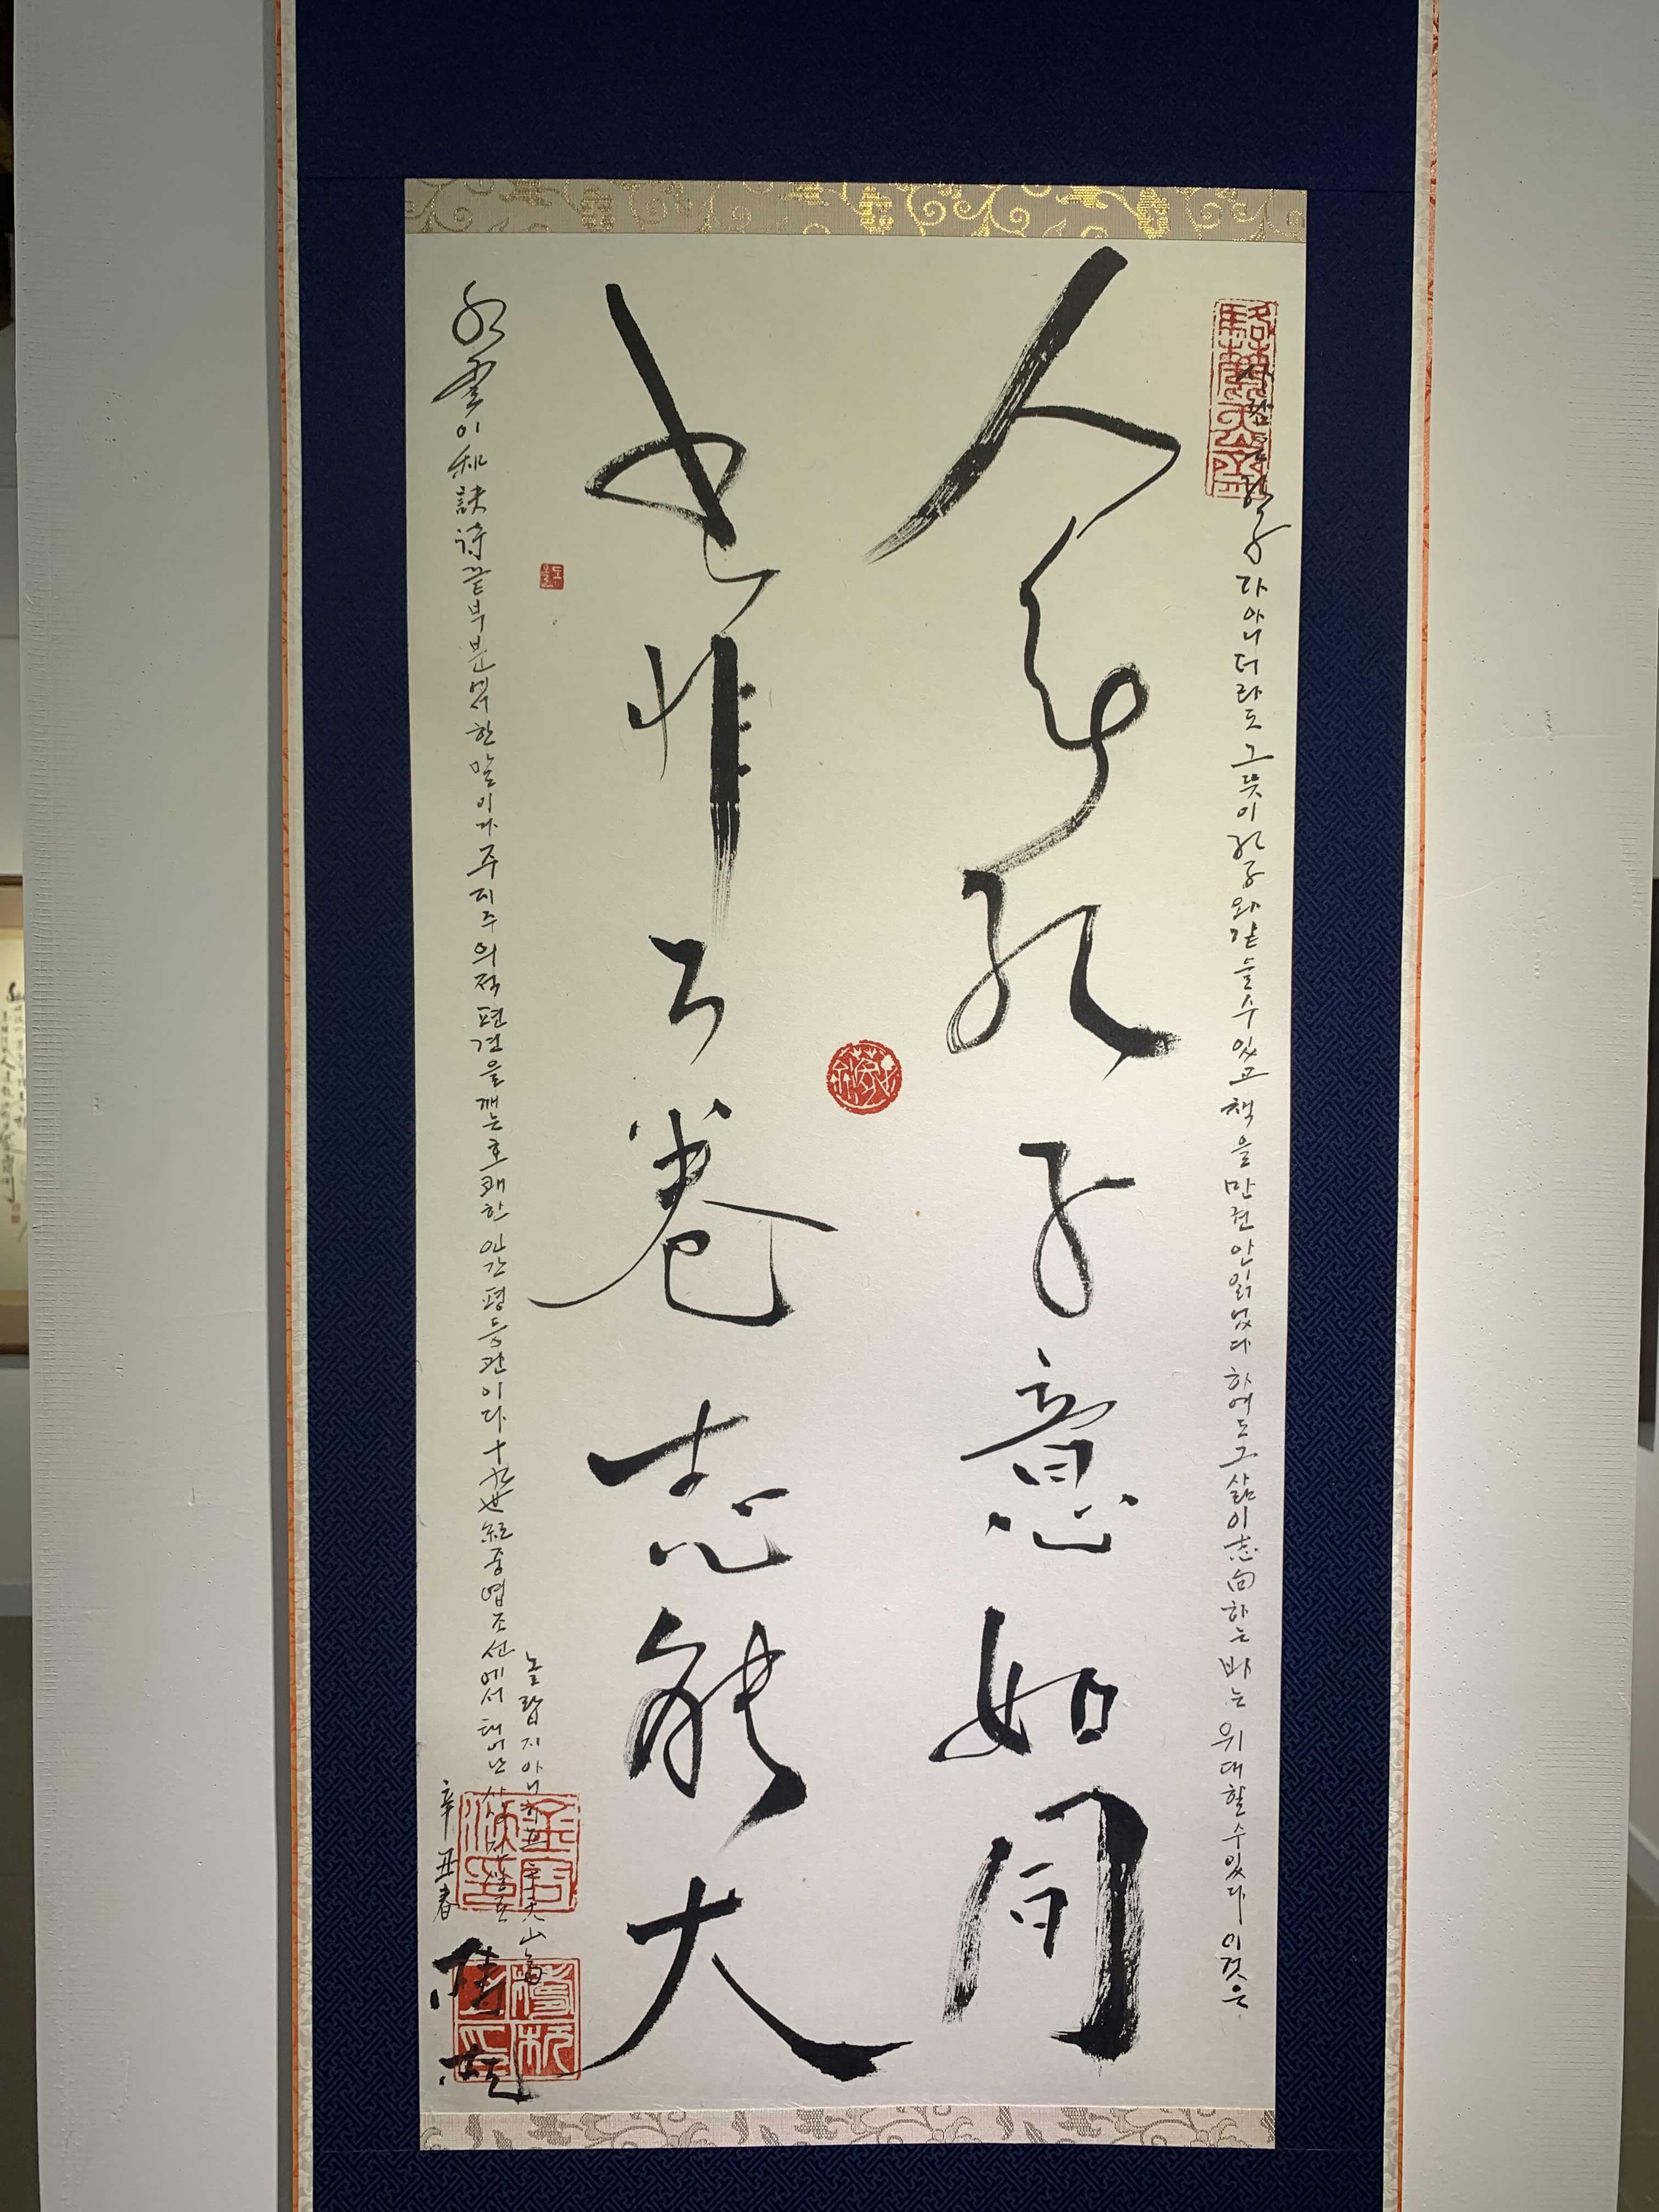 사람은孔子다아니더라도그뜻이孔子와같을수있고책을만권안읽었다하여도그삶이志向하는바는위대할수있다이것은
人無孔子意如同
書非万卷志能大
水雲이和訣詩끝부분에서한말이다주지주의적편견을깨는호쾌한인간평등관이다十九世紀중엽조선에서태어난
놀랍지아니
辛丑春
檮杌
도올